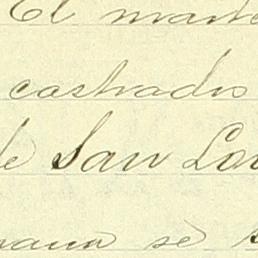 El marte
castrados
de San Lo
mana se s